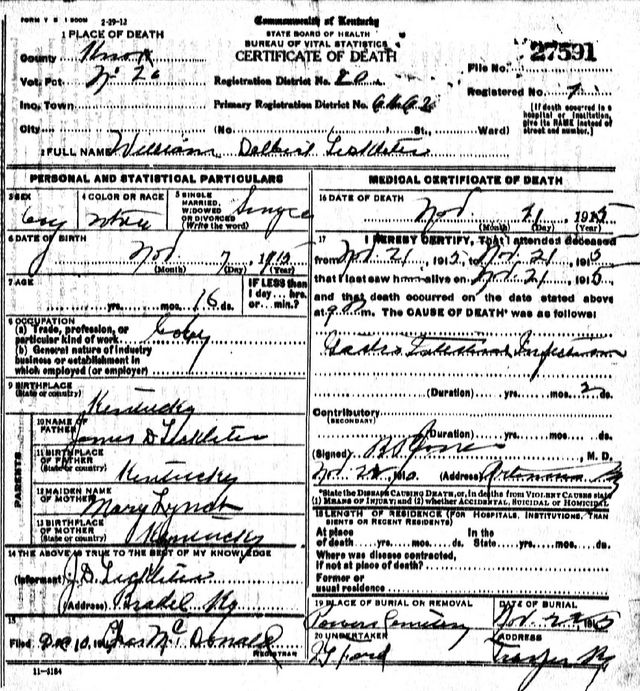 FORM V S 1 500M 2-29-12
Commonwealth of Kentucky
STATE BOARD OF HEALTH
BUREAU OF VITAL STATISTICS
CERTIFICATE OF DEATH
1 PLACE OF DEATH
County Knox
Vot. Pct. No 26
Inc. Town
City
Registration District No.
Primary Registration District No.
(No. St., Ward)
File No. 27591
Registered No.
[If death occurred in a hospital or institution, give its NAME instead of street and number.]
2 FULL NAME William Delbert
PERSONAL AND STATISTICAL PARTICULARS
3 SEX Boy
4 COLOR OR RACE White
5 SINGLE, MARRIED, WIDOWED OR DIVORCED (Write the word) Single
6 DATE OF BIRTH Nov 7, 1915
(Month) (Day) (Year)
7 AGE
yrs. mos. ds.
IF LESS than 1 day... hrs. or... min.?
8 OCCUPATION
(a) Trade, profession, or particular kind of work
(b) General nature of industry business or establishment in which employed (or employer)
9 BIRTHPLACE (State or country) Kentucky
PARENTS
10 NAME OF FATHER James D
11 BIRTHPLACE OF FATHER (State or country) Kentucky
12 MAIDEN NAME OF MOTHER Mary Lynch
13 BIRTHPLACE OF MOTHER (State or country) Kentucky
14 THE ABOVE IS TRUE TO THE BEST OF MY KNOWLEDGE
(Informant) J.D.
(Address) Ky
15
Filed Dec 10, 191 Chas Mc Donald
REGISTRAR
11-5184
MEDICAL CERTIFICATE OF DEATH
16 DATE OF DEATH Nov 21, 1915
(Month) (Day) (Year)
17 I HEREBY CERTIFY, That I attended deceased
from Nov 21, 1915, to Nov 21, 1915
that I last saw him alive on Nov 21, 1915
and that death occurred on the date stated above
at m. The CAUSE OF DEATH* was as follows:
Gastro Intestinal Infection
(Duration) yrs. mos. 2 ds.
Contributory
(SECONDARY)
(Duration) yrs. mos. ds.
(Signed) M. D.
Nov, 191 (Address) Artemus Ky
*State the DISEASE CAUSING DEATH, or, in deaths from VIOLENT CAUSES state (1) MEANS OF INJURY; and (2) whether ACCIDENTAL, SUICIDAL or HOMICIDAL
18 LENGTH OF RESIDENCE (FOR HOSPITALS, INSTITUTIONS, TRANSIENTS OR RECENT RESIDENTS)
At place of death yrs. mos. ds. In the State yrs. mos. ds.
Where was disease contracted, if not at place of death?
Former or usual residence
19 PLACE OF BURIAL OR REMOVAL Powers Cemetery
DATE OF BURIAL Nov. 191
20 UNDERTAKER
ADDRESS Ky